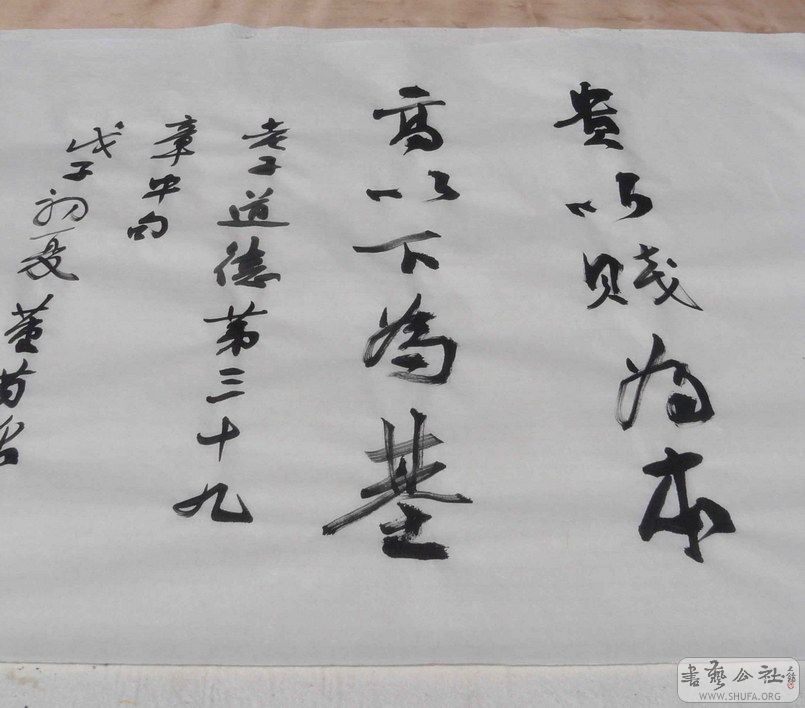 貴以賤為本
高以下為基
老子道德第三十九
章中句
戊子初夏董
書藝公社
WWW.SHUFA.ORG